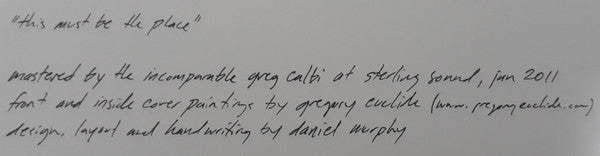 "this must be the place"
mastered by the incomparable greg calbi at sterling sound, jan 2011
front and inside cover paintings by gregory euclide (www.gregoryeuclide.com)
design, layout and handwriting by daniel murphy